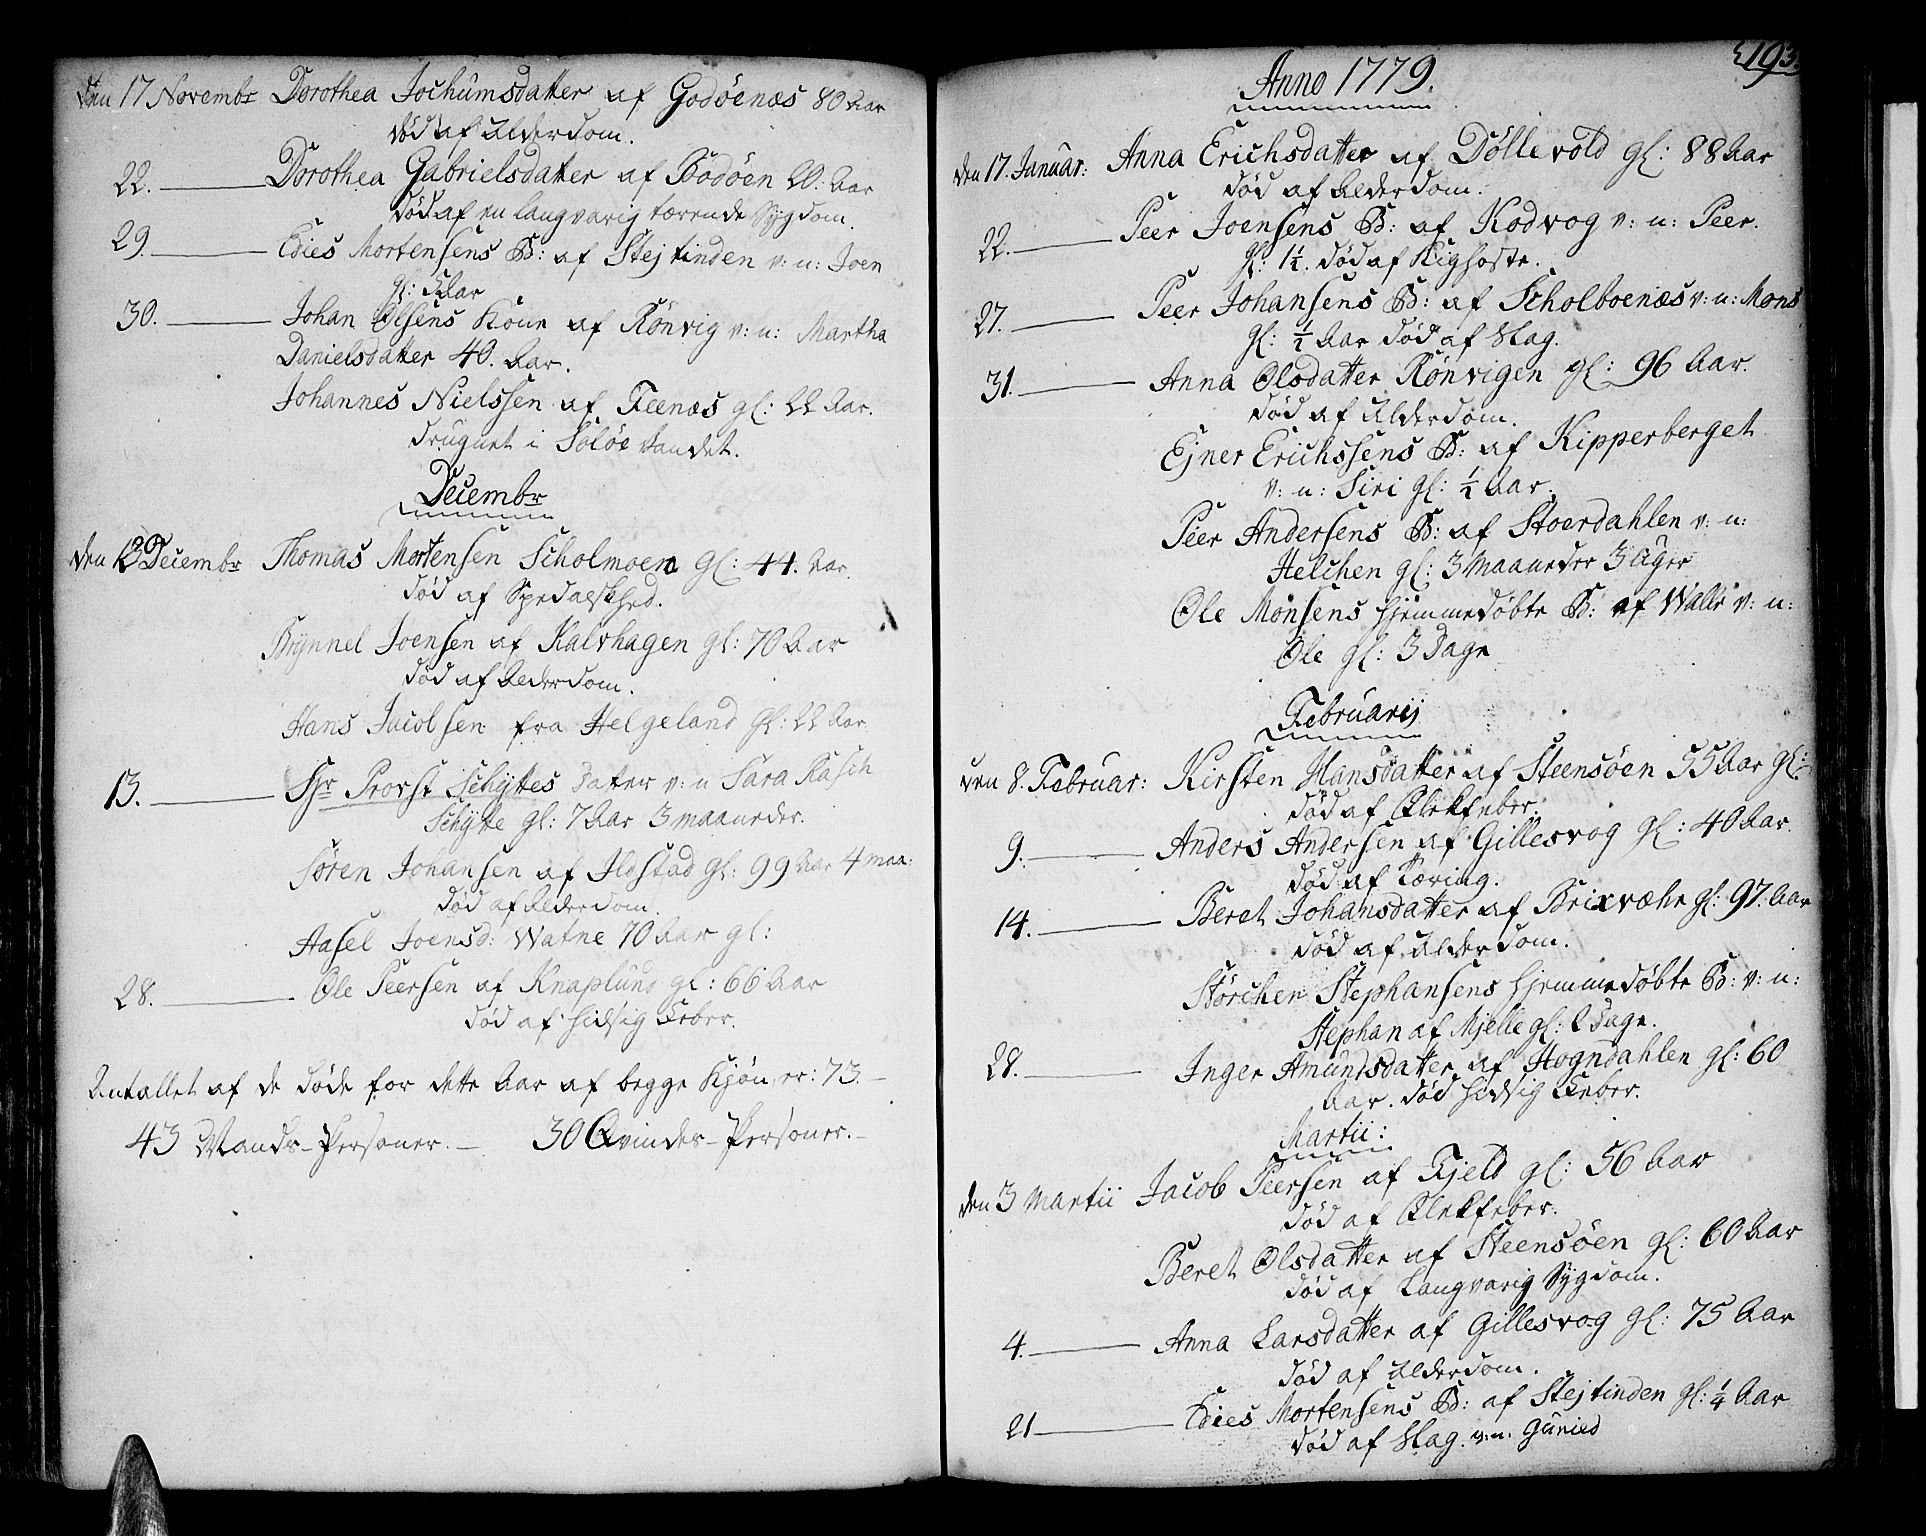 Den 17 Novembr Dorothea Jochumsdatter af Godöenæs 80 Aar
död af Alderdom.
22. Dorothea Gabrielsdatter af Bodöen 20: Aar
död af en langvarig tærende Sygdom.
29. Edies Mortensens B: af Stejtinden v: n: Joen
gl: 5 Aar
30. Johan Olsens Kone af Rönvig v: n: Martha
Danielsdatter 40. Aar.
Johannes Nielssen af Feenæs gl: 22 Aar.
drugnet i Solöe Vandet.
Decembr
den 12 Decembr Thomas Mortensen Scholmoen gl: 44. Aar.
död af Spedalskhed.
Brynnel Joensen af Kalvhagen gl: 70 Aar
död af Alderdom.
Hans Jacobsen fra Helgeland gl: 22 Aar
13. Hr Provst Schyttes Datter v: n Sara Rasch
Schytte gl: 7 Aar 3 maaneder.
Sören Johansen af Ildstad gl: 99 Aar 4 maa:
död af Alderdom.
Aasel Joensd: Watne 70 Aar gl:
28. Ole Peersen af Knaplund gl: 66 Aar
död af hidsig Feber.
Antallet af de döde for dette Aar af begge Kjön er: 73.
43 Mands-Personer. — 30 Qvindes-Personer. —
193.
Anno 1779.
den 17. Januar: Anna Erichsdatter af Döllevold gl: 88 Aar
död af Alderdom.
22. Peer Joensens B: af Kodvog v: n: Peer.
gl: 1½. död af Kighoste.
27. Peer Johansens B: af Scholboenæs v: n: Mons
gl: ½ Aar död af Slag.
31. Anna Olsdatter Rönvigen gl: 96 Aar.
död af Alderdom.
Ejner Erichssens B: af Kipperberget
v: n: Siri gl: ½ Aar.
Peer Andersens B: af Stoerdahlen v: n:
Helchen gl: 3 Maaneder 3 Uger
Ole Monsens hjemmedöbte B: af Walle v: n:
Ole gl: 3 Dage
Februarij
den 8. Februar: Kirsten Hansdatter af Steensöen 55 Aar gl:
död af Flekfeber.
9. Anders Andersen af Gillesvog gl: 40 Aar.
död af Tæring.
14. Beret Johansdatter af Brixvæhr gl: 97. Aar
död af Alderdom.
Störcher Stephansens hjemmedöbte B: v: n:
Stephan af Mjelle gl: 2 Dage.
28. Inger Amundsdatter af Hogndahlen gl: 60
Aar. död hidsig Feber.
Martii:
den 3 Martii Jacob Peersen af Fjeld gl: 56 Aar
död af Flekfeber.
Beret Olsdatter af Steensöen gl: 60 Aar
död af Langvarig Sygdom.
4. Anna Larsdatter af Gillesvog gl: 75 Aar
död af Alderdom.
21 Edies Mortensens B: af Stejtinden gl: ¼ Aar
död af Slag. v: n. Guried